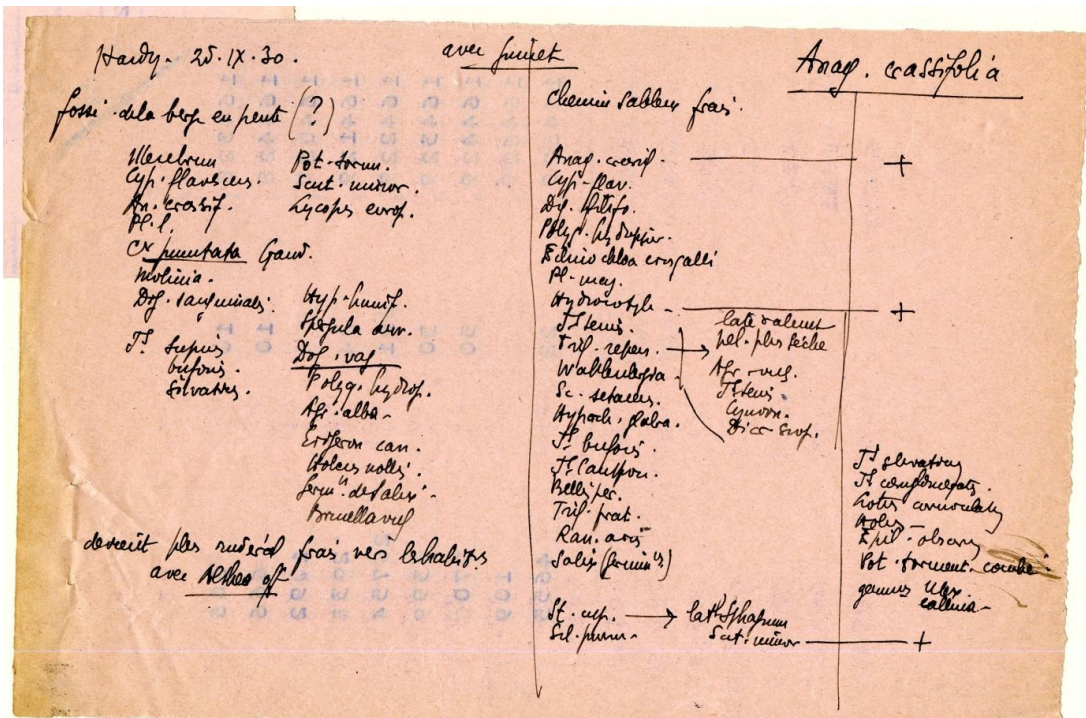 Hardy. 25.IX.30.
avec Guinet
Anag. crassifolia
fossé de la berge en pente (?)
Cyp. flavescens.
An. crassif.
Pl. l.
Cx punctata Gaud.
Molinia.
Dig. sanguinalis.
Jc supinus
bufonis.
silvaticus.
Pot. torm.
Scut. minor.
Lycopus europ.
Hyp. humif.
Spergula arv.
Dig. vag
Polyg. hydrop.
Agr. alba
Erigeron can.
Holcus mollis.
Germ.ns de Salix
Brunella vulg
devient plus rudéral frais vers
avec Althea off.
chemin sableux frais.
Anag. crassif. +
Cyp. flav.
Dig. filifo.
Polyg. hydropiper.
Echinochloa crusgalli
Pl. maj.
Hydrocotyle +
Jc tenuis.
Trif. repens. →
Wahlenbergia
Sc. setaceus.
Hypoch. glabra.
Jc bufonis.
Jc lampocar.
Bellis per.
Trif. prat.
Ran. acris
Salix (germin.ns)
latéralement
pel. plus sèche
Agr. vulg.
Jc tenuis.
Cynodon.
Dicr. scop.
St. →
Scut. minor +
Jc silvaticus
Jc conglomeratus.
Lotus corniculatus
Holcus
Epil. obscurum
Pot. torment.
genre Ulex.
calluna